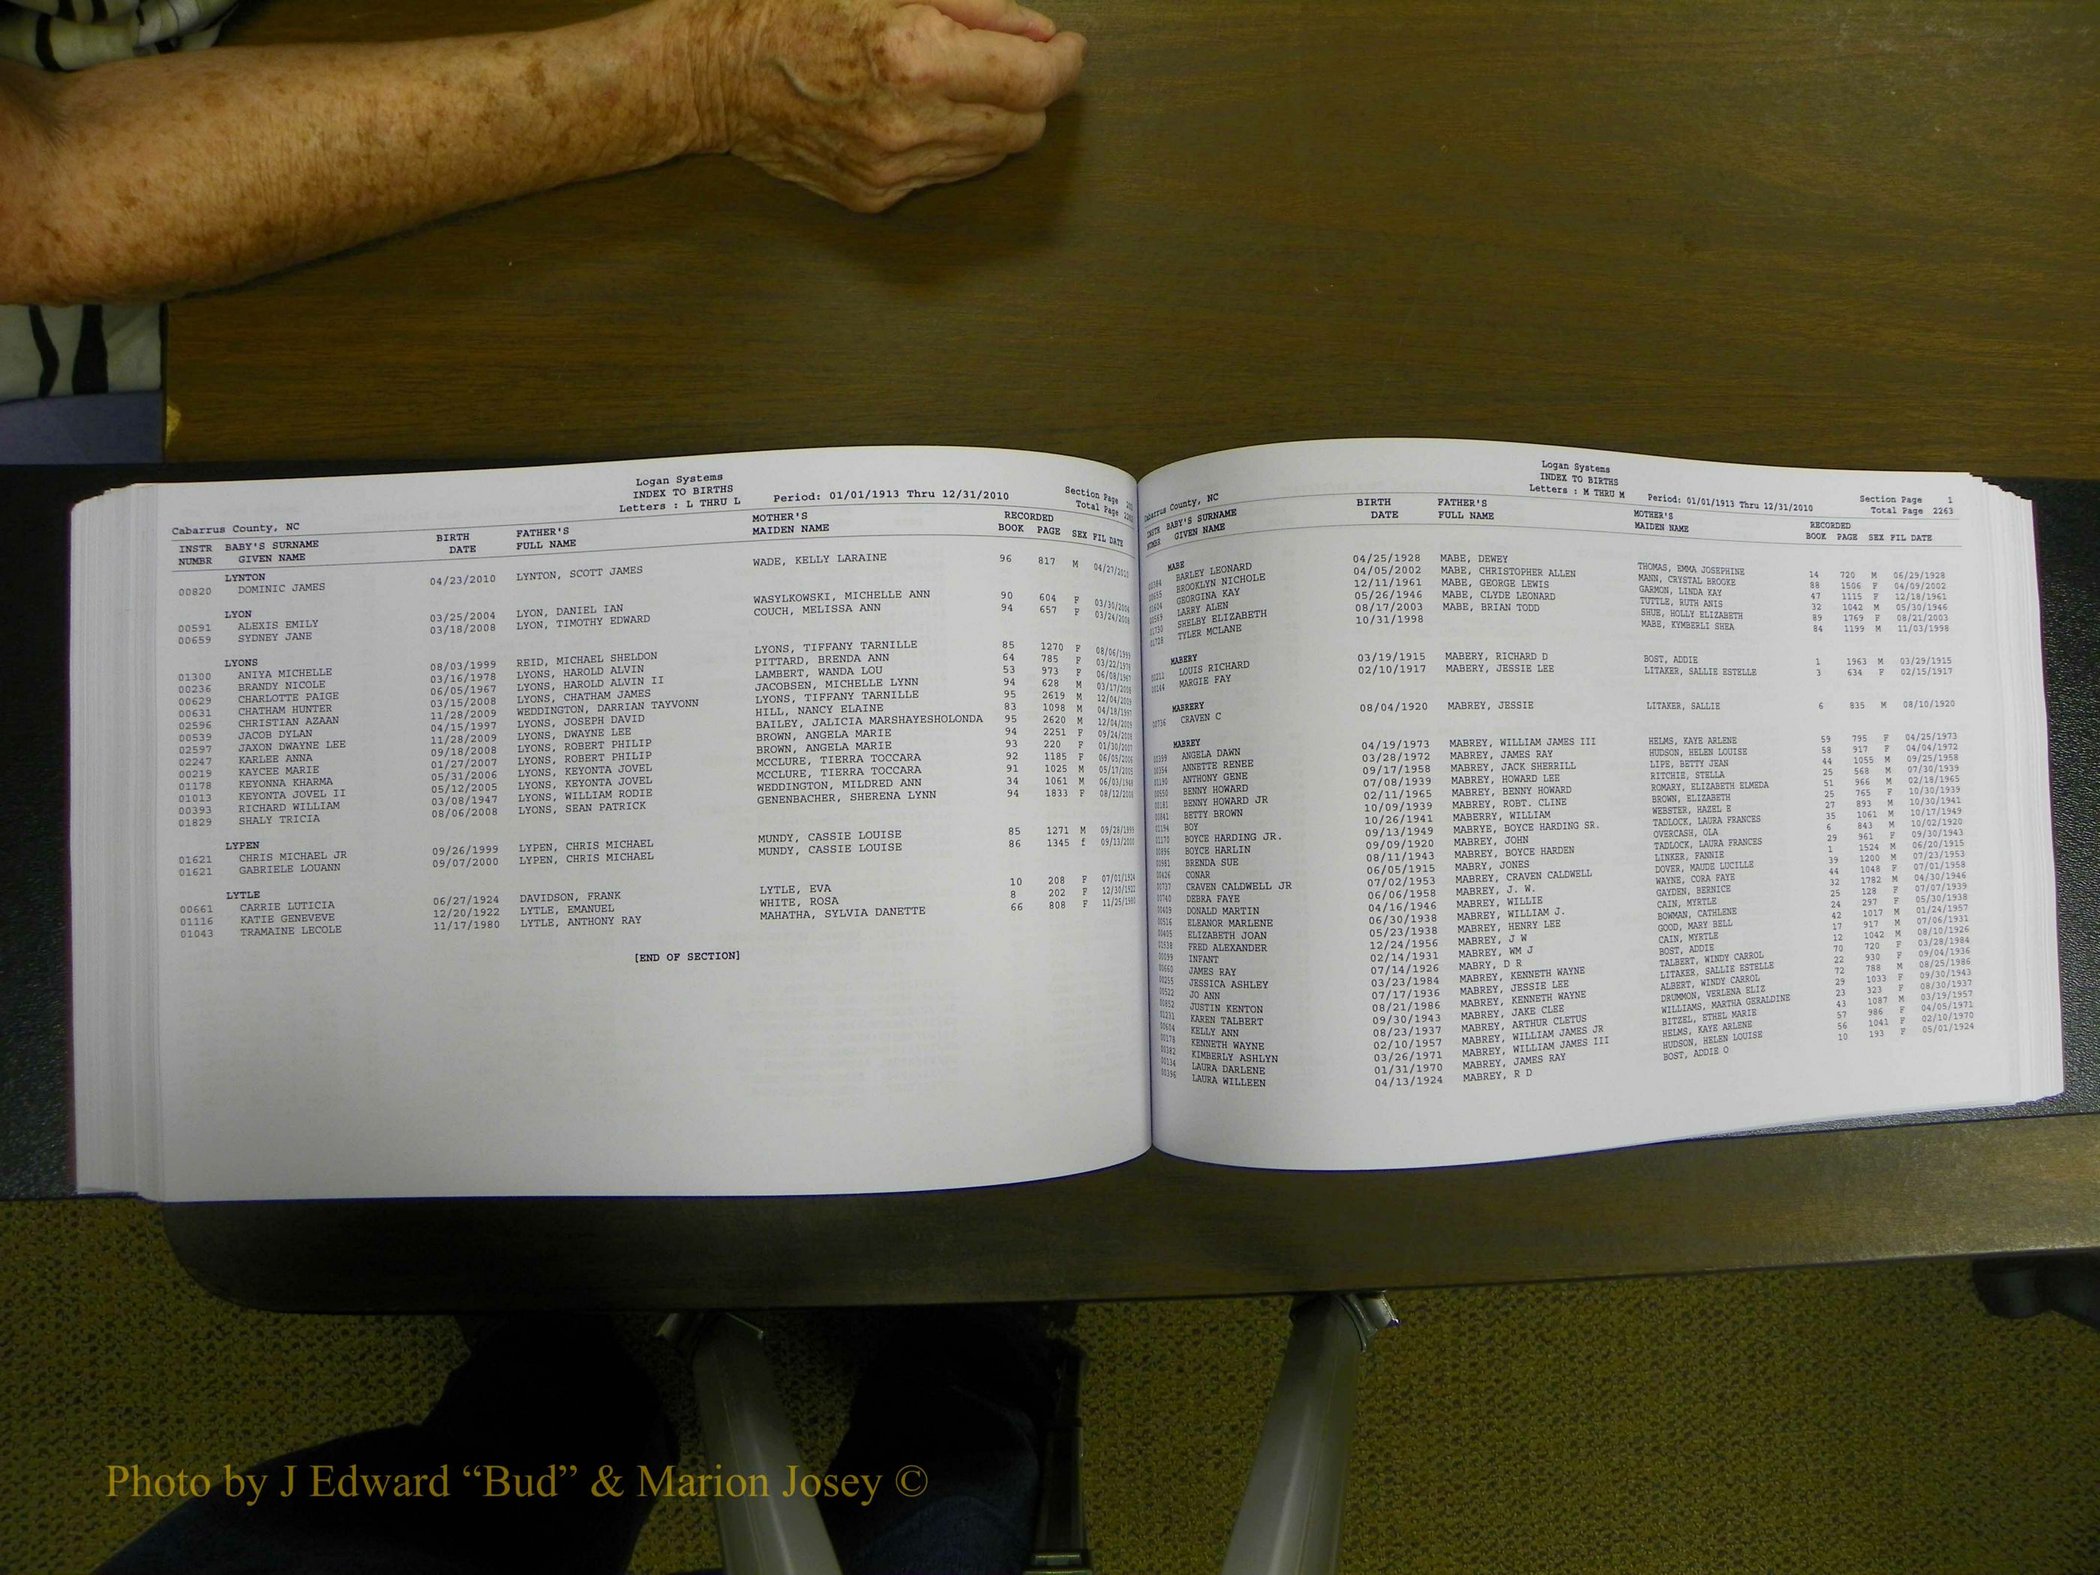 Logan Systems
INDEX TO BIRTHS
Letters : L THRU L Period: 01/01/1913 Thru 12/31/2010 Section Page
Cabarrus County, NC Total Page
INSTR BABY'S SURNAME BIRTH FATHER'S MOTHER'S RECORDED
NUMBR GIVEN NAME DATE FULL NAME MAIDEN NAME BOOK PAGE SEX FIL DATE
LYNTON
00820 DOMINIC JAMES 04/23/2010 LYNTON, SCOTT JAMES WADE, KELLY LARAINE 96 817 M 04/27/2010
LYON
00591 ALEXIS EMILY 03/25/2004 LYON, DANIEL IAN WASYLKOWSKI, MICHELLE ANN 90 604 F 03/30/2004
00659 SYDNEY JANE 03/18/2008 LYON, TIMOTHY EDWARD COUCH, MELISSA ANN 94 657 F 03/24/2008
LYONS
01300 ANIYA MICHELLE 08/03/1999 REID, MICHAEL SHELDON LYONS, TIFFANY TARNILLE 85 1270 F 08/06/1999
00236 BRANDY NICOLE 03/16/1978 LYONS, HAROLD ALVIN PITTARD, BRENDA ANN 64 785 F 03/22/1978
00629 CHARLOTTE PAIGE 06/05/1967 LYONS, HAROLD ALVIN II LAMBERT, WANDA LOU 53 973 F 06/08/1967
00631 CHATHAM HUNTER 03/15/2008 LYONS, CHATHAM JAMES JACOBSEN, MICHELLE LYNN 94 628 M 03/17/2008
02596 CHRISTIAN AZAAN 11/28/2009 WEDDINGTON, DARRIAN TAYVONN LYONS, TIFFANY TARNILLE 95 2619 M 12/04/2009
00539 JACOB DYLAN 04/15/1997 LYONS, JOSEPH DAVID HILL, NANCY ELAINE 83 1098 M 04/18/1997
02597 JAXON DWAYNE LEE 11/28/2009 LYONS, DWAYNE LEE BAILEY, JALICIA MARSHAYESHOLONDA 95 2620 M 12/04/2009
02247 KARLEE ANNA 09/18/2008 LYONS, ROBERT PHILIP BROWN, ANGELA MARIE 94 2251 F 09/24/2008
00219 KAYCEE MARIE 01/27/2007 LYONS, ROBERT PHILIP BROWN, ANGELA MARIE 93 220 F 01/30/2007
01178 KEYONNA KHARMA 05/31/2006 LYONS, KEYONTA JOVEL MCCLURE, TIERRA TOCCARA 92 1185 F 06/05/2006
01013 KEYONTA JOVEL II 05/12/2005 LYONS, KEYONTA JOVEL MCCLURE, TIERRA TOCCARA 91 1025 M 05/17/2005
00393 RICHARD WILLIAM 03/08/1947 LYONS, WILLIAM RODIE WEDDINGTON, MILDRED ANN 34 1061 M
01829 SHALY TRICIA 08/06/2008 LYONS, SEAN PATRICK GENENBACHER, SHERENA LYNN 94 1833 F 08/12/2008
LYPEN
01621 CHRIS MICHAEL JR 09/26/1999 LYPEN, CHRIS MICHAEL MUNDY, CASSIE LOUISE 85 1271 M 09/28/1999
01621 GABRIELE LOUANN 09/07/2000 LYPEN, CHRIS MICHAEL MUNDY, CASSIE LOUISE 86 1345 f 09/13/2000
LYTLE
00661 CARRIE LUTICIA 06/27/1924 DAVIDSON, FRANK LYTLE, EVA 10 208 F 07/01/1924
01116 KATIE GENEVEVE 12/20/1922 LYTLE, EMANUEL WHITE, ROSA 8 202 F 12/30/1922
01043 TRAMAINE LECOLE 11/17/1980 LYTLE, ANTHONY RAY MAHATHA, SYLVIA DANETTE 66 808 F 11/25/1980
[END OF SECTION]
Logan Systems
INDEX TO BIRTHS
Letters : M THRU M Period: 01/01/1913 Thru 12/31/2010 Section Page 1
Cabarrus County, NC Total Page 2263
INSTR BABY'S SURNAME BIRTH FATHER'S MOTHER'S RECORDED
NUMBR GIVEN NAME DATE FULL NAME MAIDEN NAME BOOK PAGE SEX FIL DATE
MABE
BARLEY LEONARD 04/25/1928 MABE, DEWEY THOMAS, EMMA JOSEPHINE 14 720 M 06/29/1928
BROOKLYN NICHOLE 04/05/2002 MABE, CHRISTOPHER ALLEN MANN, CRYSTAL BROOKE 88 1506 F 04/09/2002
GEORGINA KAY 12/11/1961 MABE, GEORGE LEWIS GARMON, LINDA KAY 47 1115 F 12/18/1961
LARRY ALEN 05/26/1946 MABE, CLYDE LEONARD TUTTLE, RUTH ANIS 32 1042 M 05/30/1946
SHELBY ELIZABETH 08/17/2003 MABE, BRIAN TODD SHUE, HOLLY ELIZABETH 89 1769 F 08/21/2003
TYLER MCLANE 10/31/1998 MABE, KYMBERLI SHEA 84 1199 M 11/03/1998
MABERY
LOUIS RICHARD 03/19/1915 MABERY, RICHARD D BOST, ADDIE 1 1963 M 03/29/1915
MARGIE FAY 02/10/1917 MABERY, JESSIE LEE LITAKER, SALLIE ESTELLE 3 634 F 02/15/1917
MABRERY
00736 CRAVEN C 08/04/1920 MABREY, JESSIE LITAKER, SALLIE 6 835 M 08/10/1920
MABREY
ANGELA DAWN 04/19/1973 MABREY, WILLIAM JAMES III HELMS, KAYE ARLENE 59 795 F 04/25/1973
ANNETTE RENEE 03/28/1972 MABREY, JAMES RAY HUDSON, HELEN LOUISE 58 917 F 04/04/1972
ANTHONY GENE 09/17/1958 MABREY, JACK SHERRILL LIPE, BETTY JEAN 44 1055 M 09/25/1958
BENNY HOWARD 07/08/1939 MABREY, HOWARD LEE RITCHIE, STELLA 25 568 M 07/30/1939
BENNY HOWARD JR 02/11/1965 MABREY, BENNY HOWARD ROMARY, ELIZABETH ELMEDA 51 966 M 02/18/1965
BETTY BROWN 10/09/1939 MABREY, ROBT. CLINE BROWN, ELIZABETH 25 765 F 10/30/1939
BOY 10/26/1941 MABERRY, WILLIAM WEBSTER, HAZEL E 27 893 M 10/30/1941
BOYCE HARDING JR. 09/13/1949 MABRYE, BOYCE HARDING SR. TADLOCK, LAURA FRANCES 35 1061 M 10/17/1949
BOYCE HARLIN 09/09/1920 MABREY, JOHN OVERCASH, OLA 6 843 M 10/02/1920
BRENDA SUE 08/11/1943 MABRY, BOYCE HARDEN TADLOCK, LAURA FRANCES 29 961 F 09/30/1943
CONAR 06/05/1915 MABRY, JONES LINKER, FANNIE 1 1524 M 06/20/1915
CRAVEN CALDWELL JR 07/02/1953 MABREY, CRAVEN CALDWELL DOVER, MAUDE LUCILLE 39 1200 M 07/23/1953
DEBRA FAYE 06/06/1958 MABREY, J. W. WAYNE, CORA FAYE 44 1048 F 07/01/1958
DONALD MARTIN 04/16/1946 MABREY, WILLIE GAYDEN, BERNICE 32 1782 M 04/30/1946
ELEANOR MARLENE 06/30/1938 MABREY, WILLIAM J. CAIN, MYRTLE 25 128 F 07/07/1939
ELIZABETH JOAN 05/23/1938 MABREY, HENRY LEE BOWMAN, CATHLENE 24 297 F 05/30/1938
FRED ALEXANDER 12/24/1956 MABREY, J W GOOD, MARY BELL 42 1017 M 01/24/1957
INFANT 02/14/1931 MABREY, WM J CAIN, MYRTLE 17 917 M 07/06/1931
JAMES RAY 07/14/1926 MABRY, D R BOST, ADDIE 12 1042 M 08/10/1926
JESSICA ASHLEY 03/23/1984 MABREY, KENNETH WAYNE TALBERT, WINDY CARROL 70 720 F 03/28/1984
JO ANN 07/17/1936 MABREY, JESSIE LEE LITAKER, SALLIE ESTELLE 22 930 F 09/04/1936
JUSTIN KENTON 08/21/1986 MABREY, KENNETH WAYNE ALBERT, WINDY CARROL 72 788 M 08/25/1986
KAREN TALBERT 09/30/1943 MABREY, JAKE CLEE DRUMMON, VERLENA ELIZ 29 1033 F 09/30/1943
KELLY ANN 08/23/1937 MABREY, ARTHUR CLETUS WILLIAMS, MARTHA GERALDINE 23 323 F 08/30/1937
KENNETH WAYNE 02/10/1957 MABREY, WILLIAM JAMES JR BITZEL, ETHEL MARIE 43 1087 M 03/19/1957
KIMBERLY ASHLYN 03/26/1971 MABREY, WILLIAM JAMES III HELMS, KAYE ARLENE 57 986 F 04/05/1971
LAURA DARLENE 01/31/1970 MABREY, JAMES RAY HUDSON, HELEN LOUISE 56 1041 F 02/10/1970
00396 LAURA WILLEEN 04/13/1924 MABREY, R D BOST, ADDIE O 10 193 F 05/01/1924
Photo by J Edward “Bud” & Marion Josey ©